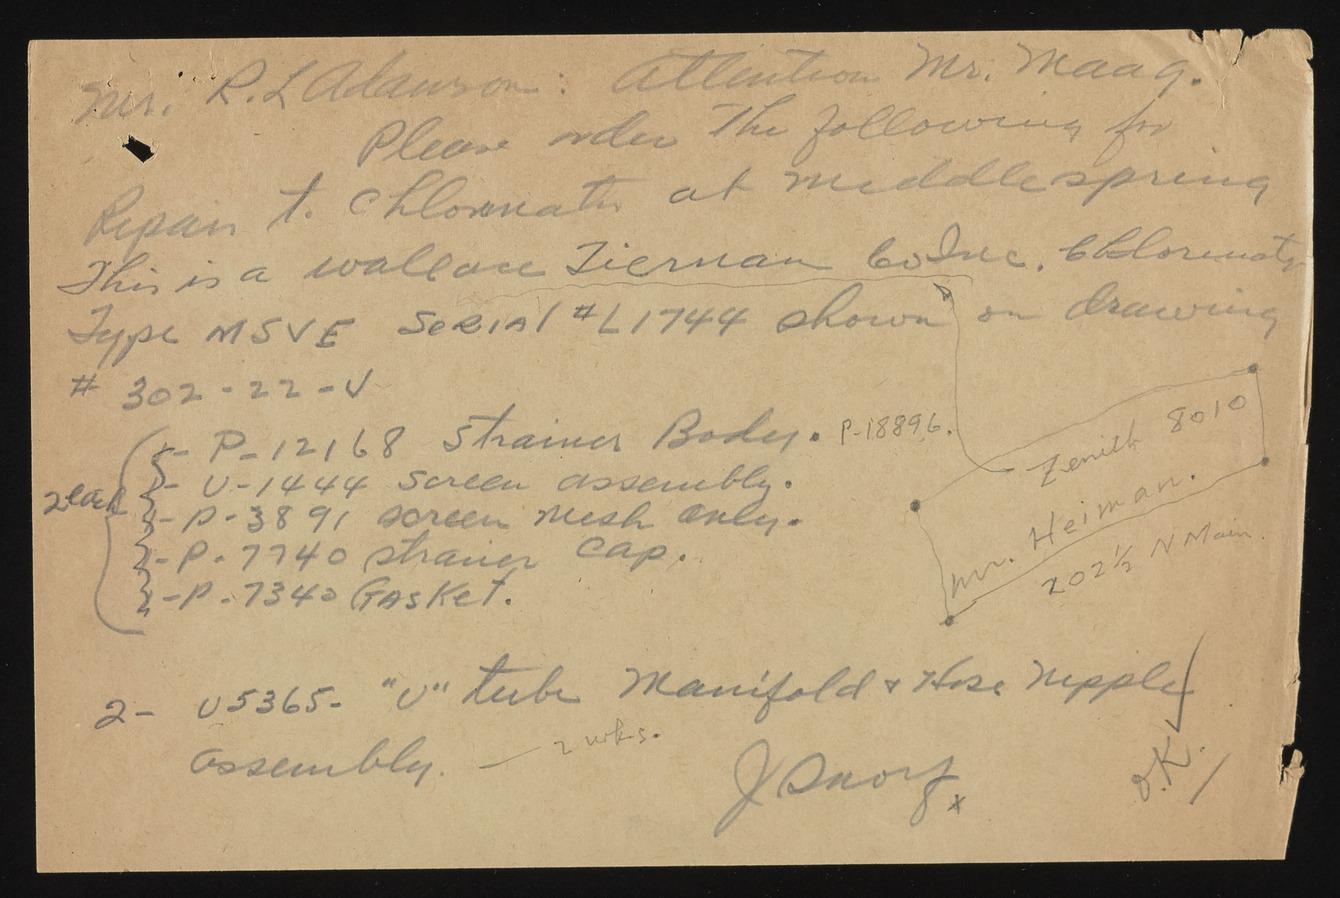 Mr. R.L Adamson: Attention Mr. Maag.
Please order The following for
Repair t. Chlorinator at Middlespring
This is a wallace Tiernan Co Inc. Chlorinator
Type MSVE SERIAl #L1744 shown on drawing
# 302-22-V
2 each
- P-12168 Strainer Body. P-18896.
- U-1444 screen assembly.
- P-3891 screen mesh only.
- P-7740 strainer Cap.
- P-7340 Gasket.
Zenith 8010
Mr. Heiman.
202½ N Main.
2- U5365- "U" tube Manifold & Hose Nipple
assembly. — 2 wks.
O.K.